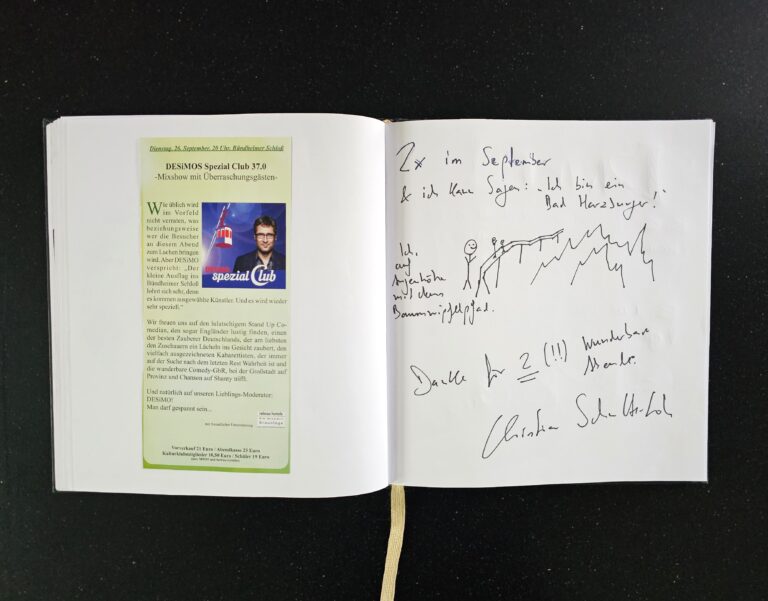 Dienstag, 26. September, 20 Uhr, Bündheimer Schloß
DESiMOS Spezial Club 37.0
-Mixshow mit Überraschungsgästen-
Wie üblich wird
im Vorfeld
nicht verraten, was
beziehungsweise
wer die Besucher
an diesem Abend
zum Lachen bringen
wird. Aber DESiMO
verspricht: „Der
kleine Ausflug ins
Bündheimer Schloß
lohnt sich sehr, denn
es kommen ausgewählte Künstler. Und es wird wieder
sehr speziell."
spezial Club
Wir freuen uns auf den Stand Up Co-
median, den sogar Engländer lustig finden, einen
der besten Zauberer Deutschlands, der am liebsten
den Zuschauern ein Lächeln ins Gesicht zaubert, den
vielfach ausgezeichneten Kabarettisten, der immer
auf der Suche nach dem letzten Rest Wahrheit ist und
die wunderbare Comedy-GbR, bei der Großstadt auf
Provinz und Chanson auf Shanty trifft.
Und natürlich auf unseren Lieblings-Moderator:
DESiMO!
Man darf gespannt sein...
mit freundlicher Unterstützung
Vorverkauf 21 Euro / Abendkasse 23 Euro
Kulturklubmitglieder 18,50 Euro / Schüler 19 Euro
2x im September
& ich kann sagen: „Ich bin ein
Bad Harzburger!"
Ich,
auf
Augenhöhe
mit dem
Baumwipfelpfad.
Danke für 2 (!!) wunderbare
Abende.
Christian